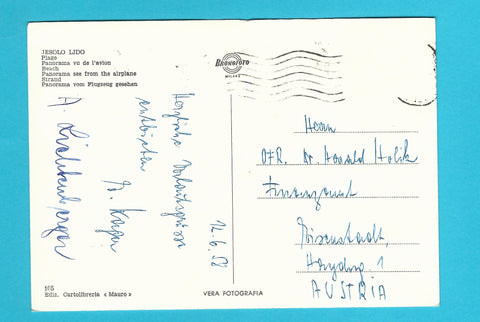 JESOLO LIDO
Plage
Panorama vu de l'avion
Beach
Panorama see from the airplane
Strand
Panorama vom Flugzeug gesehen
Buonoforo
MILANO
Herzliche Urlaubsgrüsse
entbieten
A. Lichtenberger
12.6.58
Herrn
OFR. Dr. Harald Holik
Finanzamt
Eisenstadt,
Haydng. 1
AUSTRIA
105
Ediz. Cartolibreria « Mauro »
VERA FOTOGRAFIA